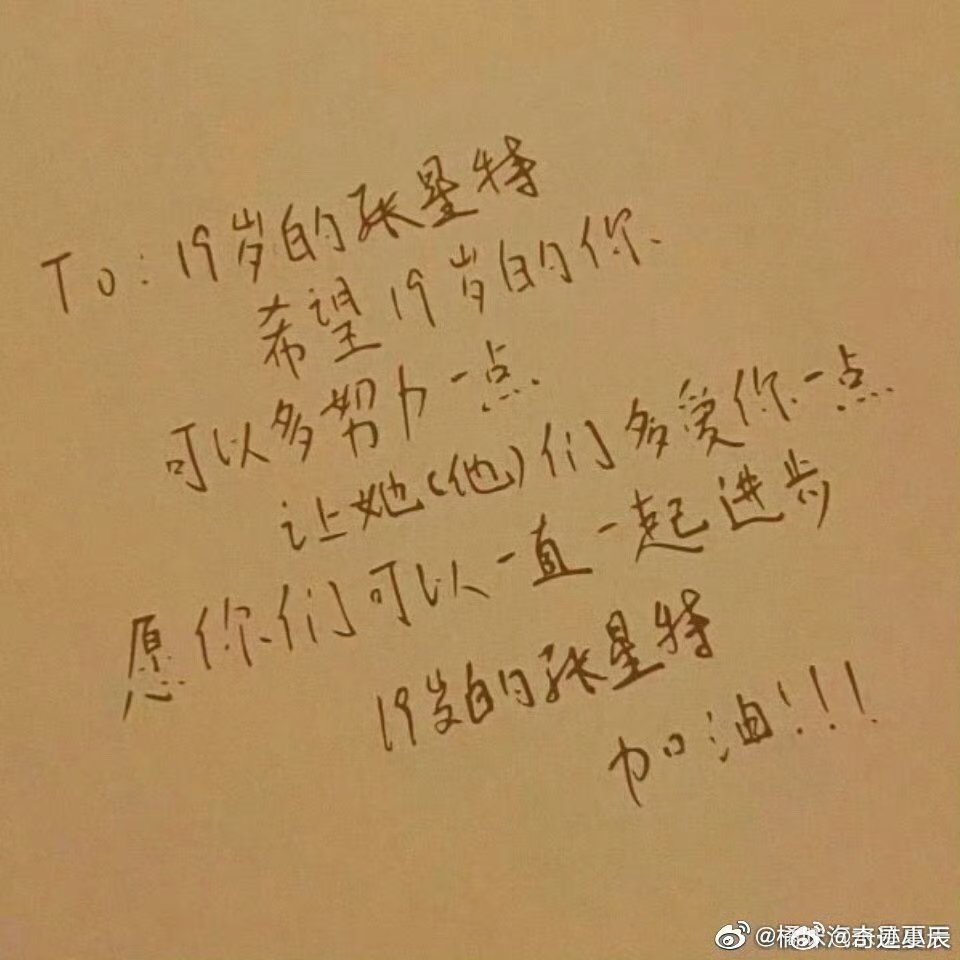 To:19岁的张星特
希望19岁的你.
可以多努力一点.
让她(他)们多爱你一点
愿你们可以一直一起进步
19岁的张星特
加油!!!